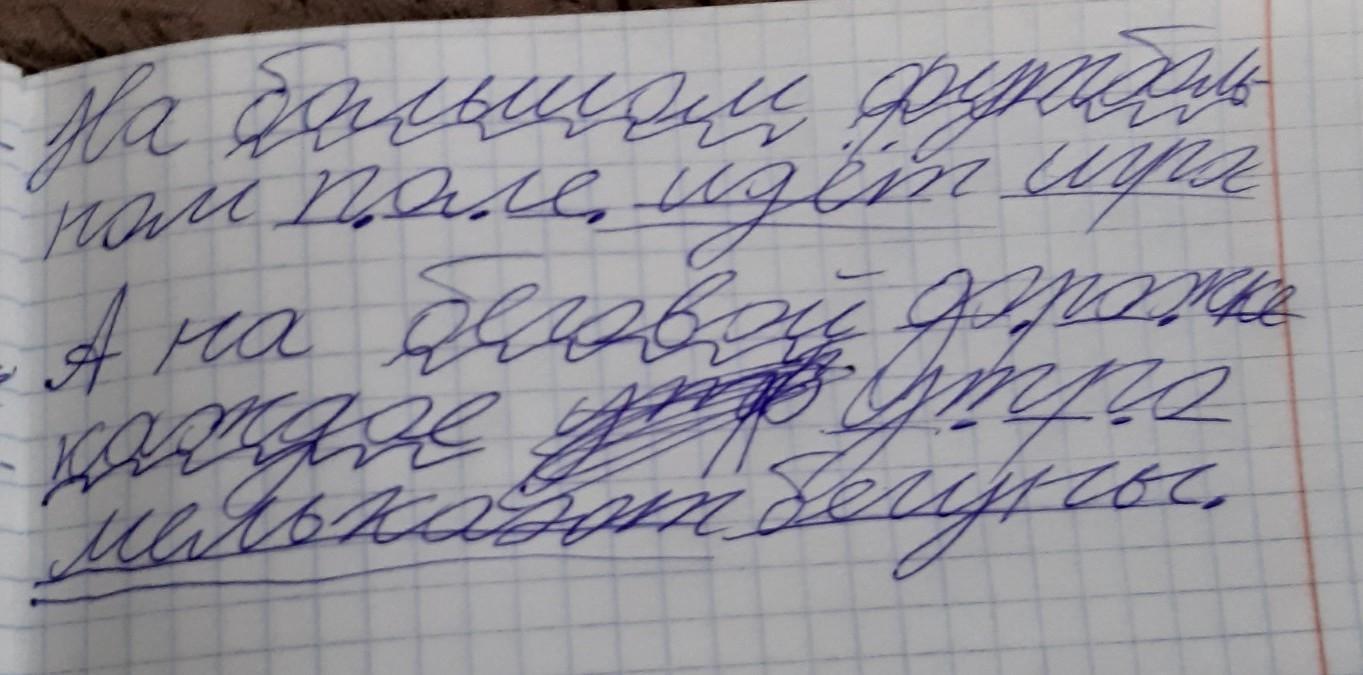 На большом футболь-
ном поле идёт игра
А на беговой дорожке
каждое утро
мелькают бегуны.